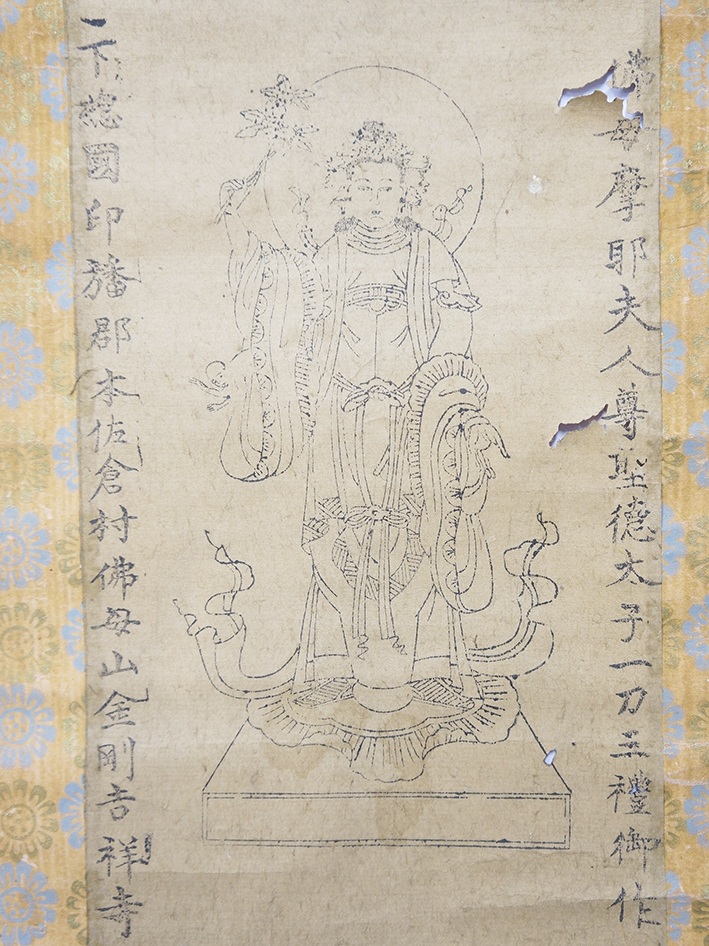 佛母摩耶夫人尊聖德太子一刀三禮御作
下總國印旛郡本佐倉村佛母山金剛吉祥寺